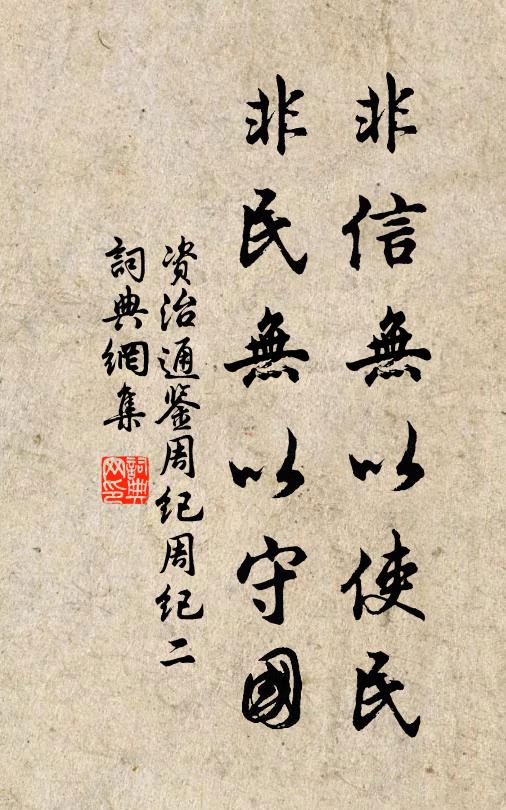 非信無以使民
非民無以守國
资治通鉴周纪周纪二
詞典網集
詞典网印